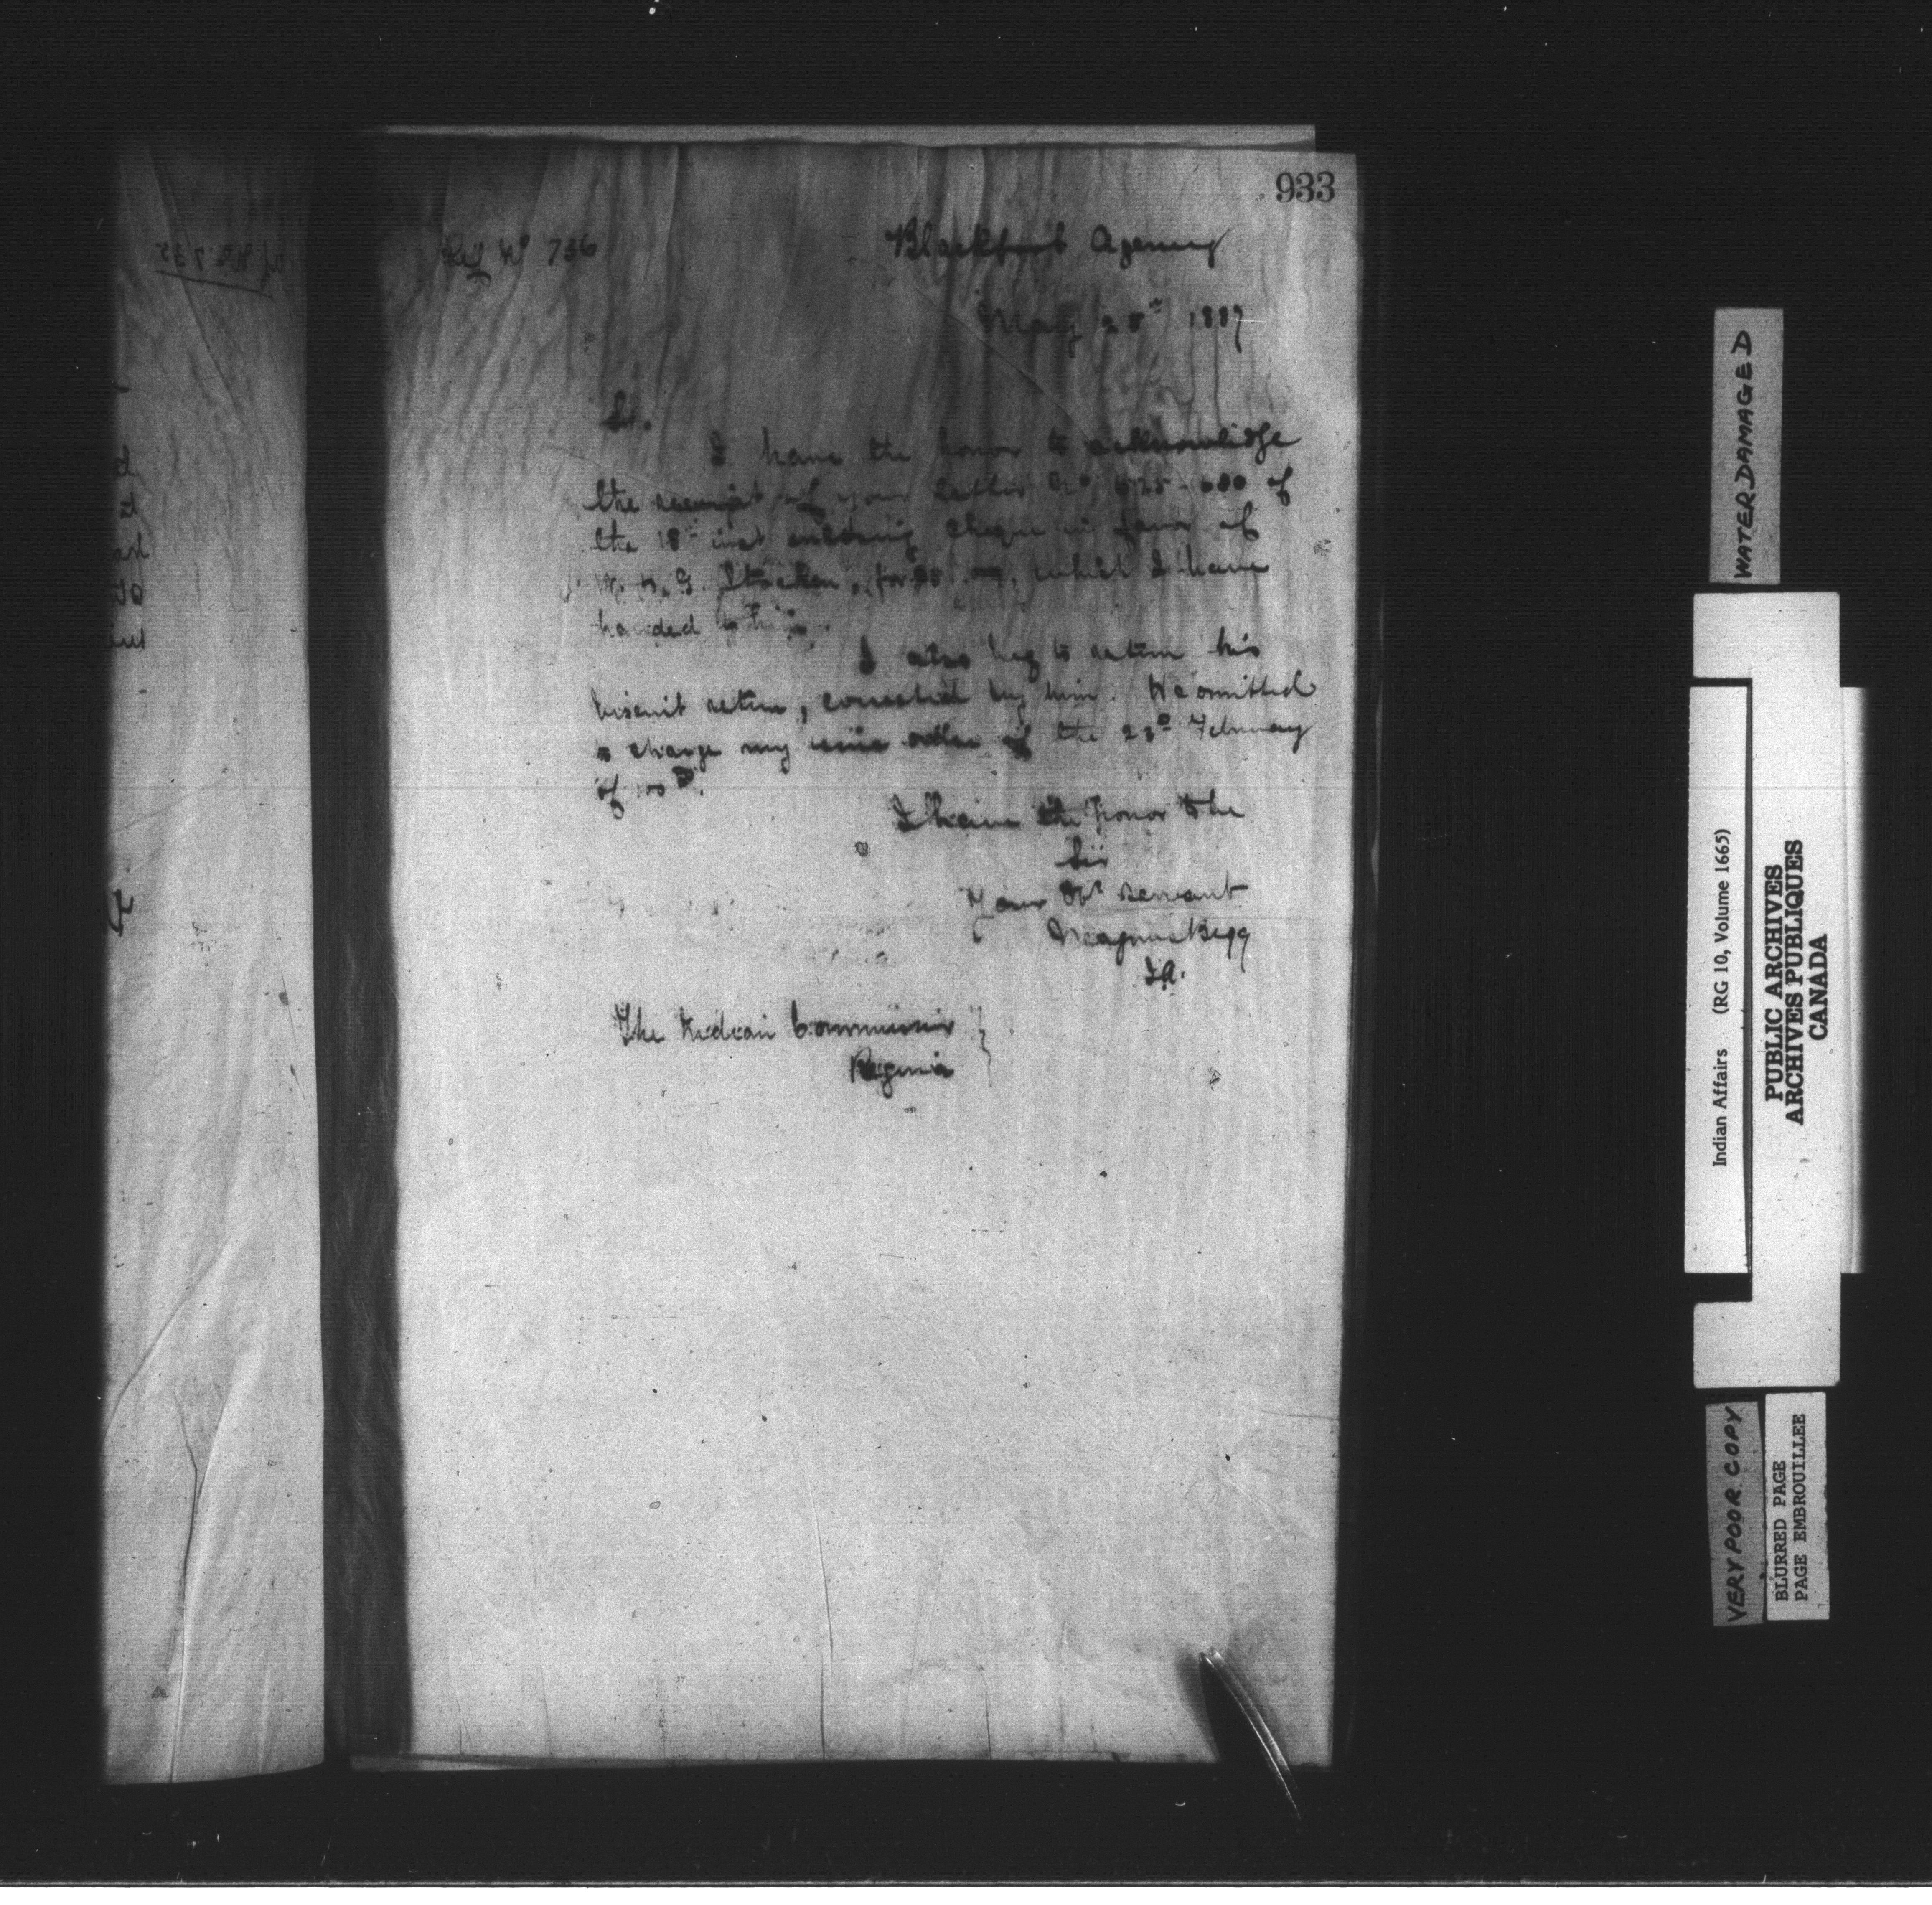 933
Ref No 736
Blackfoot Agency
May 28th 1887
Sir.
I have the honor to acknowledge
the receipt of your Letter No of
the 18th inst enclosing cheque in favor of
W. H. G. Stocken, for which I have
handed to him.
I also beg to return his
biscuit return, corrected by him. He omitted
to charge my issue order of the 23rd February
of 100 lb.
I have the honor to be
Sir
Your Obt servant
Magnus Begg
I.A.
The Indian Commissioner
Regina
WATERDAMAGED
Indian Affairs (RG 10, Volume 1665)
PUBLIC ARCHIVES
ARCHIVES PUBLIQUES
CANADA
VERY POOR COPY
BLURRED PAGE
PAGE EMBROUILLEE